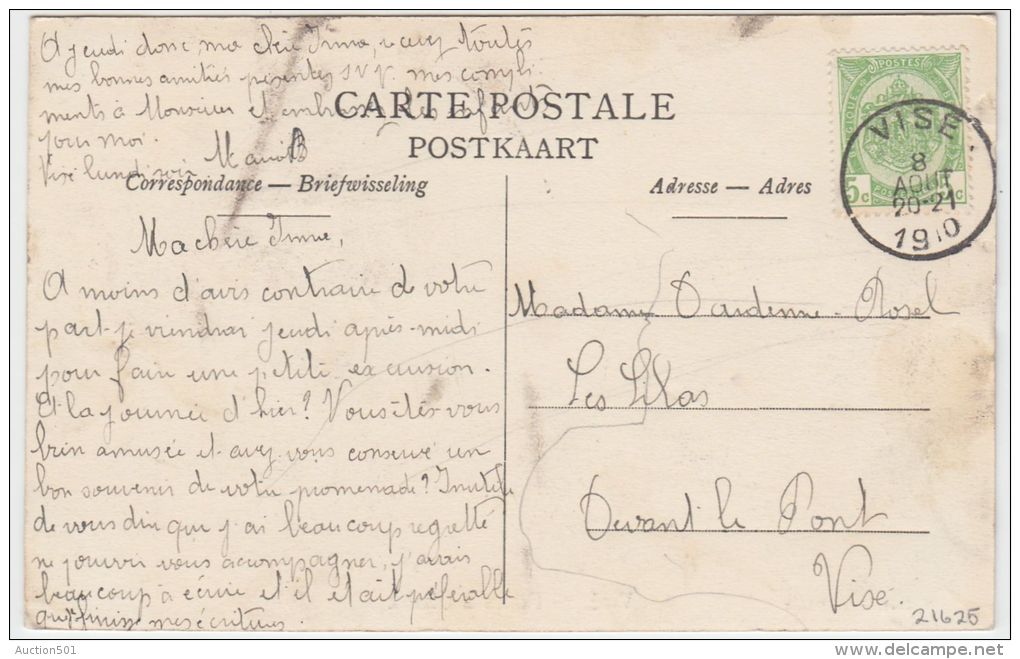 A jeudi donc, ma chère Irma, vous toutes
mes bonnes amitiés présentez S.V.P. mes compli
ments à Monsieur et embrassez les enfants
pour moi.
Visé lundi soir
CARTE POSTALE
POSTKAART
Correspondance — Briefwisseling
Adresse — Adres
POSTES
5 c
VISE
8
AOUT
20-21
1910
Ma chère Irma,
A moins d'avis contraire de votre
part je viendrai jeudi après-midi
pour faire une petite excursion.
Et la journée d'hier? Vous êtes-vous
bien amusée et avez vous conservé un
bon souvenir de votre promenade? Inutile
de vous dire que j'ai beaucoup regretté
ne pouvoir vous accompagner, j'avais
beaucoup à écrire et il était préférable
mes écritures.
Madame Dardenne-Rosel
Les Lilas
Devant le Pont
Visé.
21625
Auction501
delcampe.net